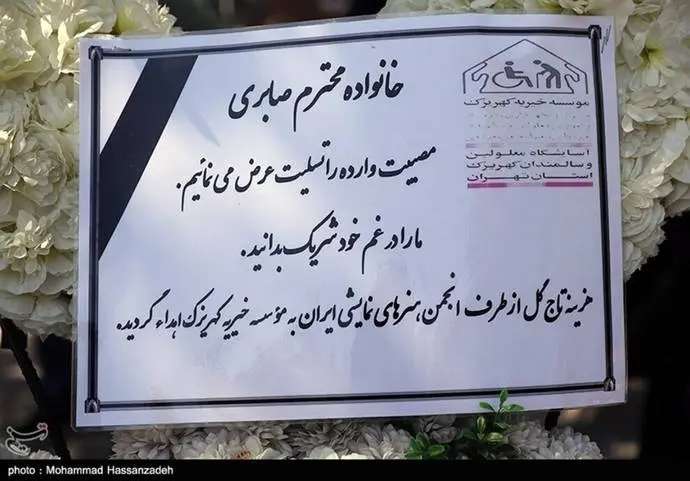 موسسه خیریه کهریزک
آسایشگاه معلولین
و سالمندان کهریزک
استان تهران
خانواده محترم صابری
مصیبت وارده را تسلیت عرض می نمائیم.
ما را در غم خود شریک بدانید.
هزینه تاج گل از طرف انجمن هنرهای نمایشی ایران به مؤسسه خیریه کهریزک اهداء گردید.
photo : Mohammad Hassanzadeh